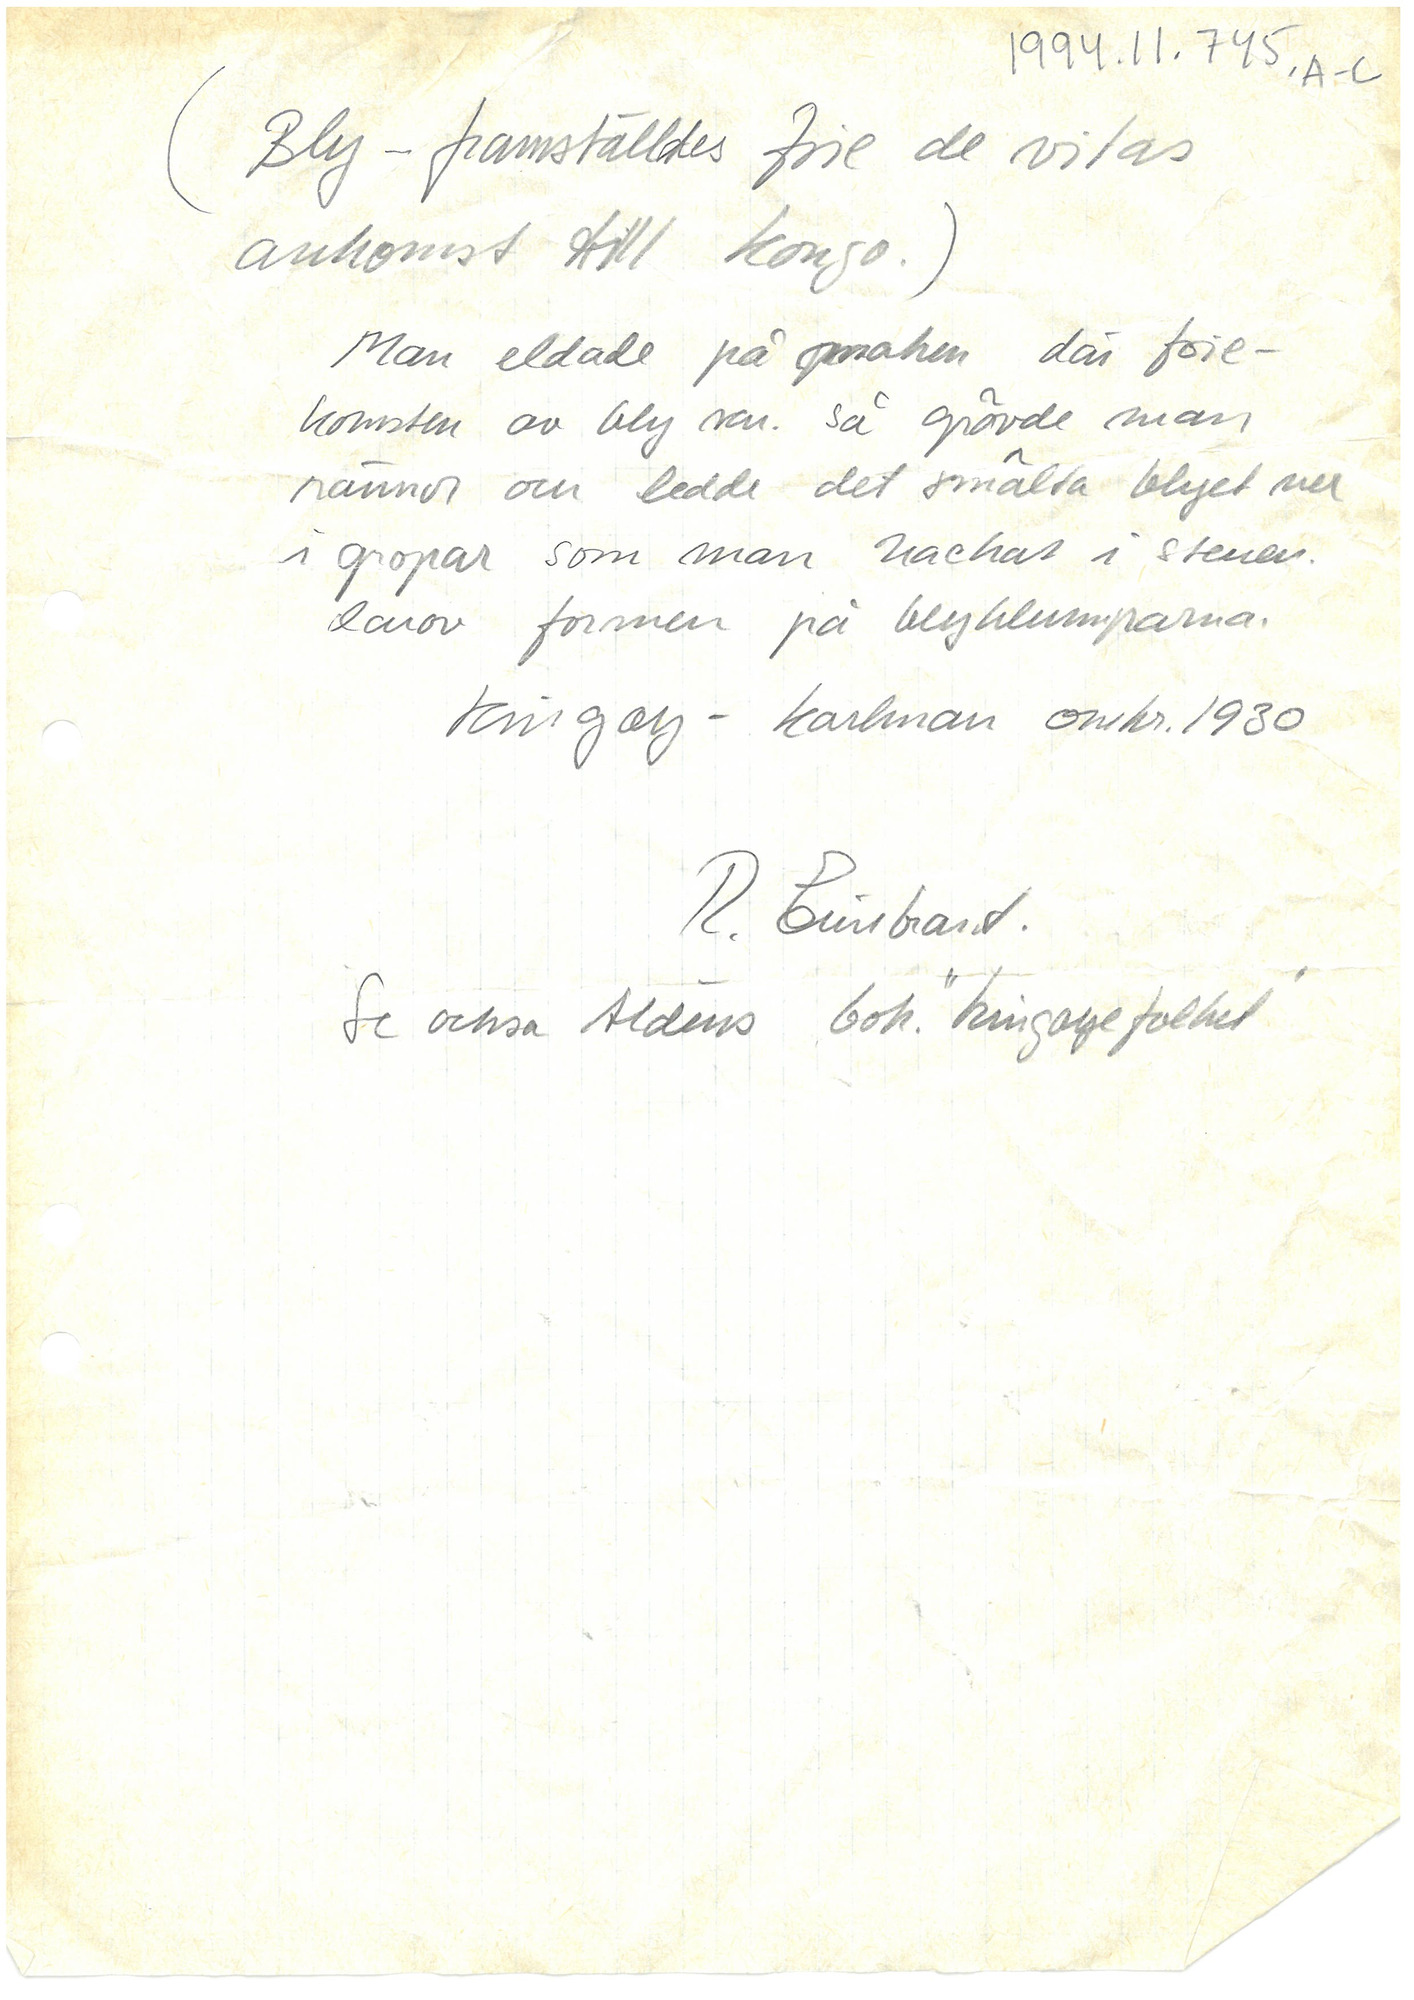 1994.11.745.A-C
(Bly - framställdes före de vitas
ankomst till Kongo.)
Man eldade på marken där före-
komsten av bly var. Så grävde man
rännor och ledde det smälta blyet ner
i gropar som man hackat i stenen.
Därav formen på blyklumparna.
Kingoy - Karlman omkr. 1930
R.
Se också Aldéns bok. "Kingoyefolket"